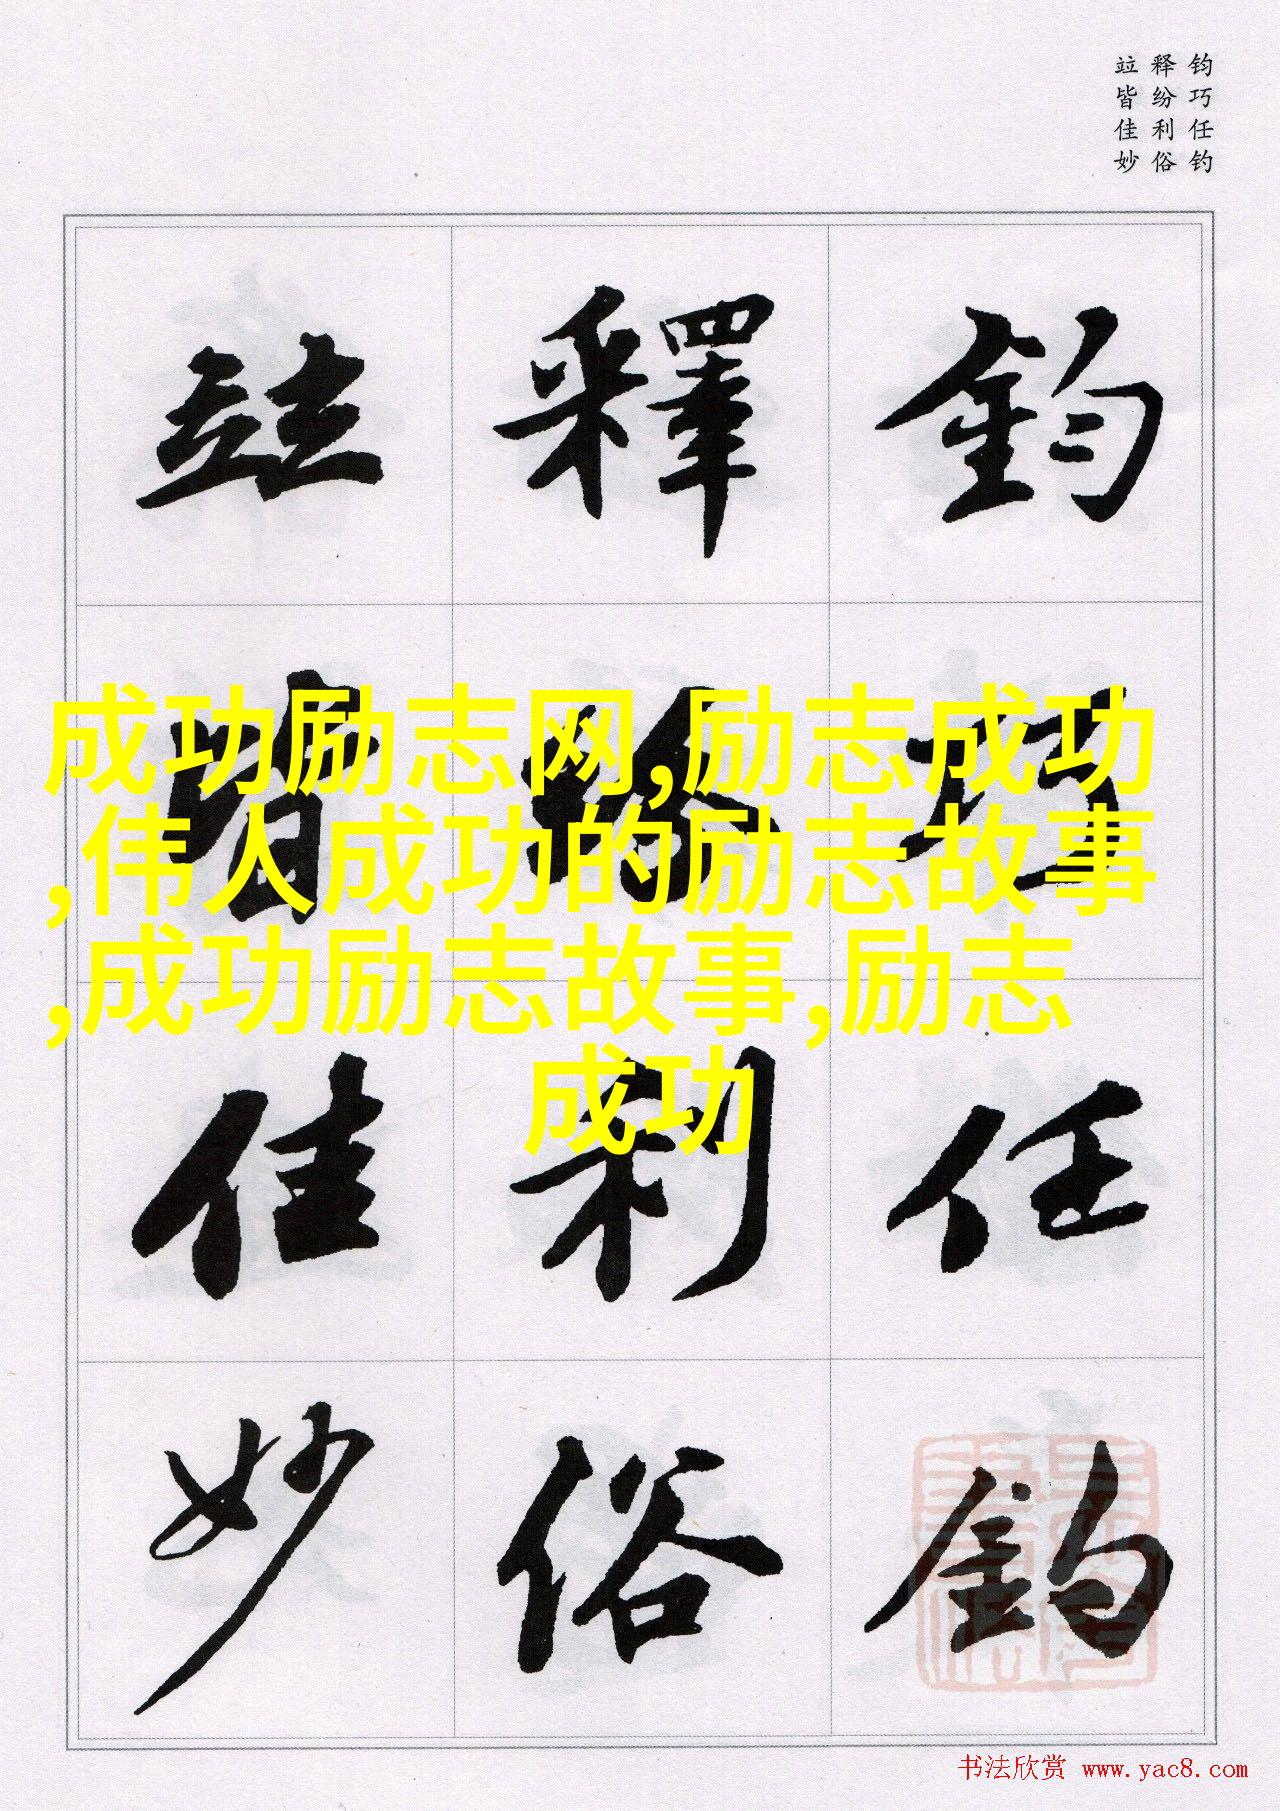 钧巧任钓
释纷利俗
竝皆佳妙
鈞巧任釣
釋紛利俗
竝皆佳妙
成功励志网,励志成功
,伟人成功的励志故事
,成功励志故事,励志
成功
书法欣赏 www.yac8.com